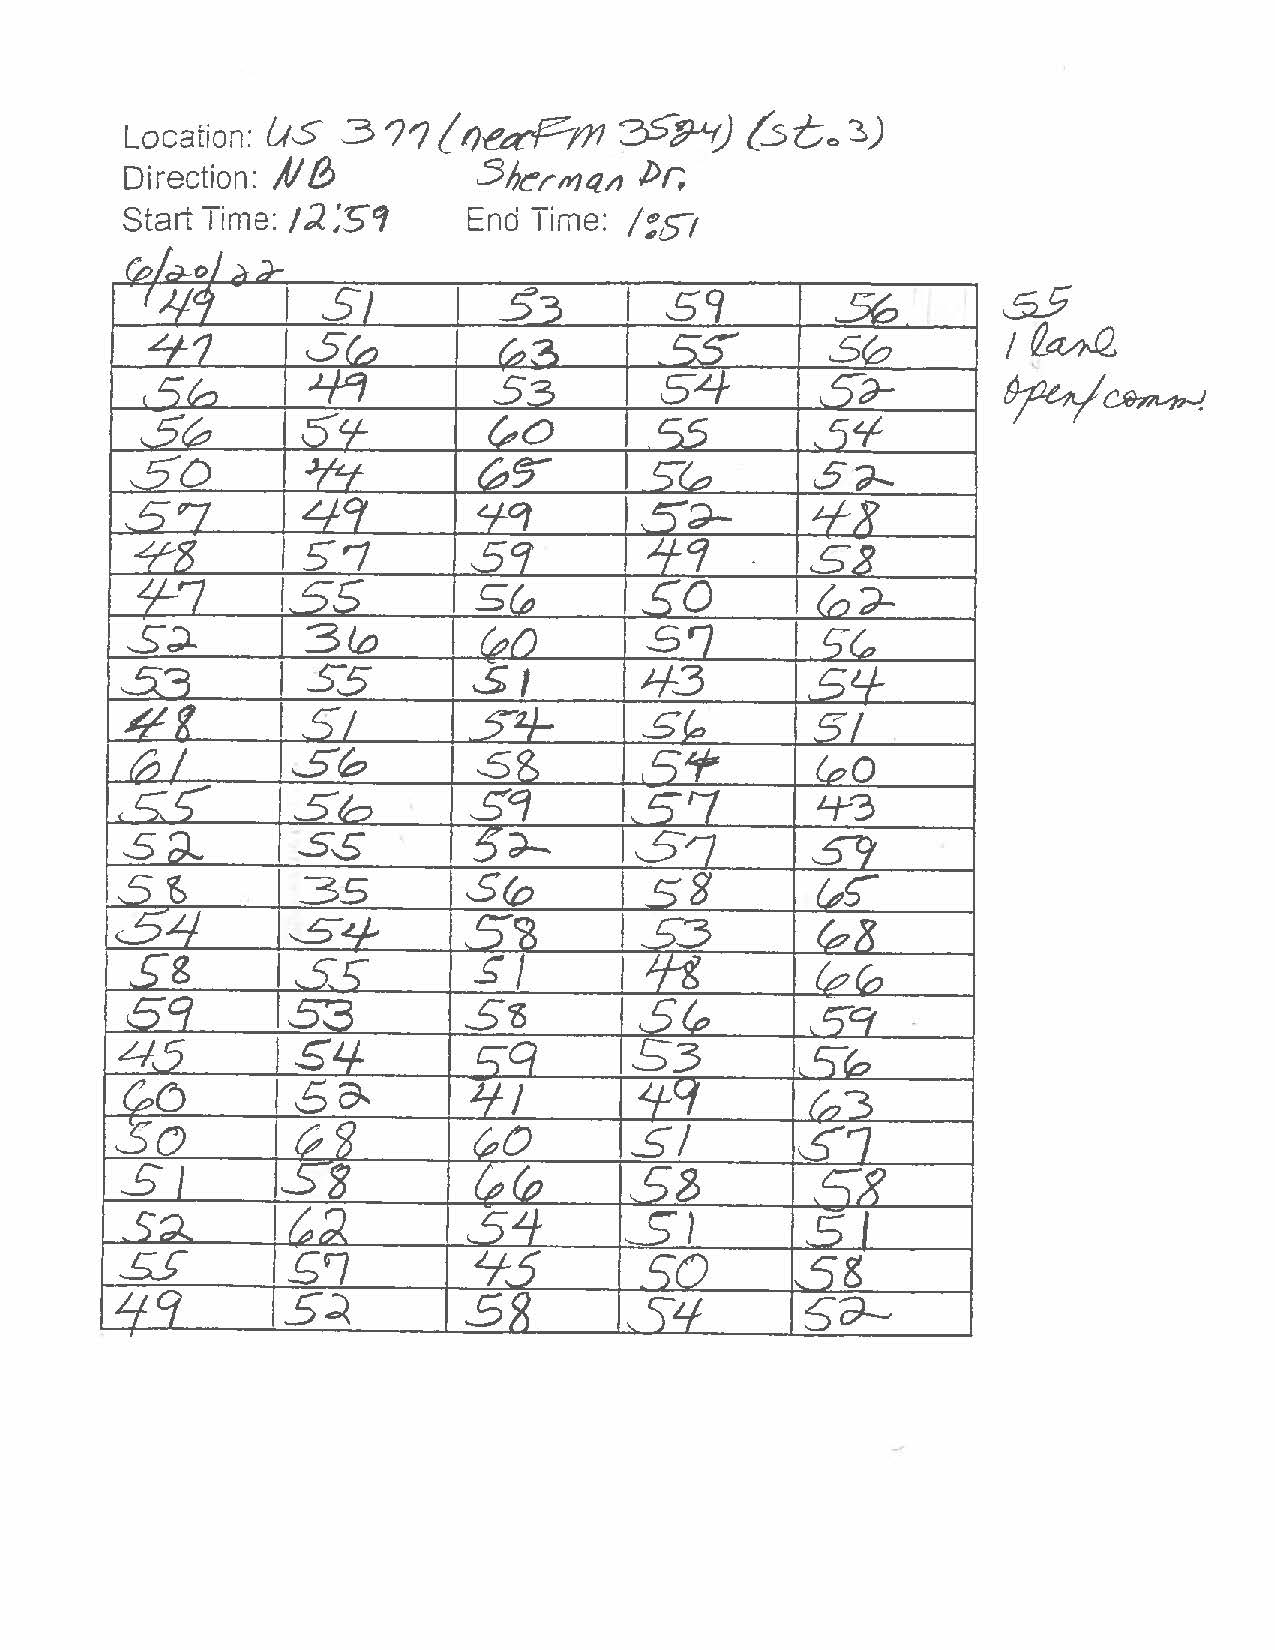 Location: US 377 (near Fm 3524) (st. 3)
Direction: NB Sherman Dr.
Start Time: 12:59 End Time: 1:51
6/20/22
49 51 53 59 56 55
47 56 63 55 56 1 lane
56 49 53 54 52 open/comm.
56 54 60 55 54
50 44 65 56 52
57 49 49 52 48
48 57 59 49 58
47 55 56 50 62
52 36 60 57 56
53 55 51 43 54
48 51 54 56 51
61 56 58 54 60
55 56 59 57 43
52 55 52 57 59
58 35 56 58 65
54 54 58 53 68
58 55 51 48 66
59 53 58 56 59
45 54 59 53 56
60 52 41 49 63
50 68 60 51 57
51 58 66 58 58
52 62 54 51 51
55 57 45 50 58
49 52 58 54 52